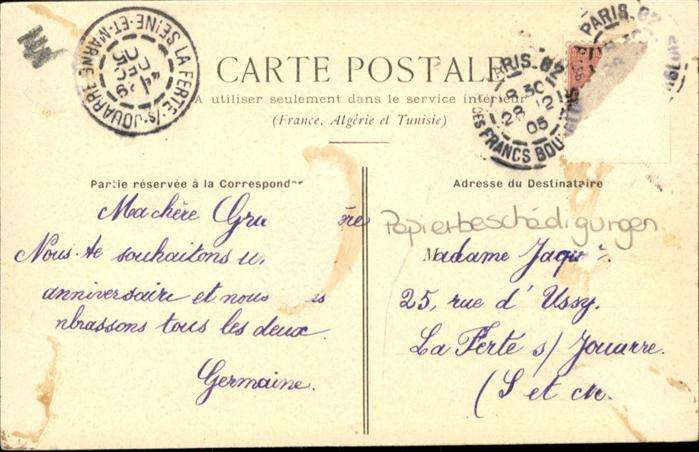 LA FERTE-S/S-JOUARRE
SEINE-ET-MARNE
CARTE POSTALE
A utiliser seulement dans le service intérieur
(France, Algérie et Tunisie)
PARIS. 62
8 30
28 12
05
DES FRANCS BOURGEOIS
PARIS. 62
Partie réservée à la Correspondan
Ma chère Gra ère
Nous te souhaitons u
anniversaire et nous
mbrassons tous les deux.
Germaine.
Adresse du Destinataire
Papierbeschädigungen.
Madame Jaqu
25, rue d'Ussy.
La Ferte s/ Jouarre.
(S et M.